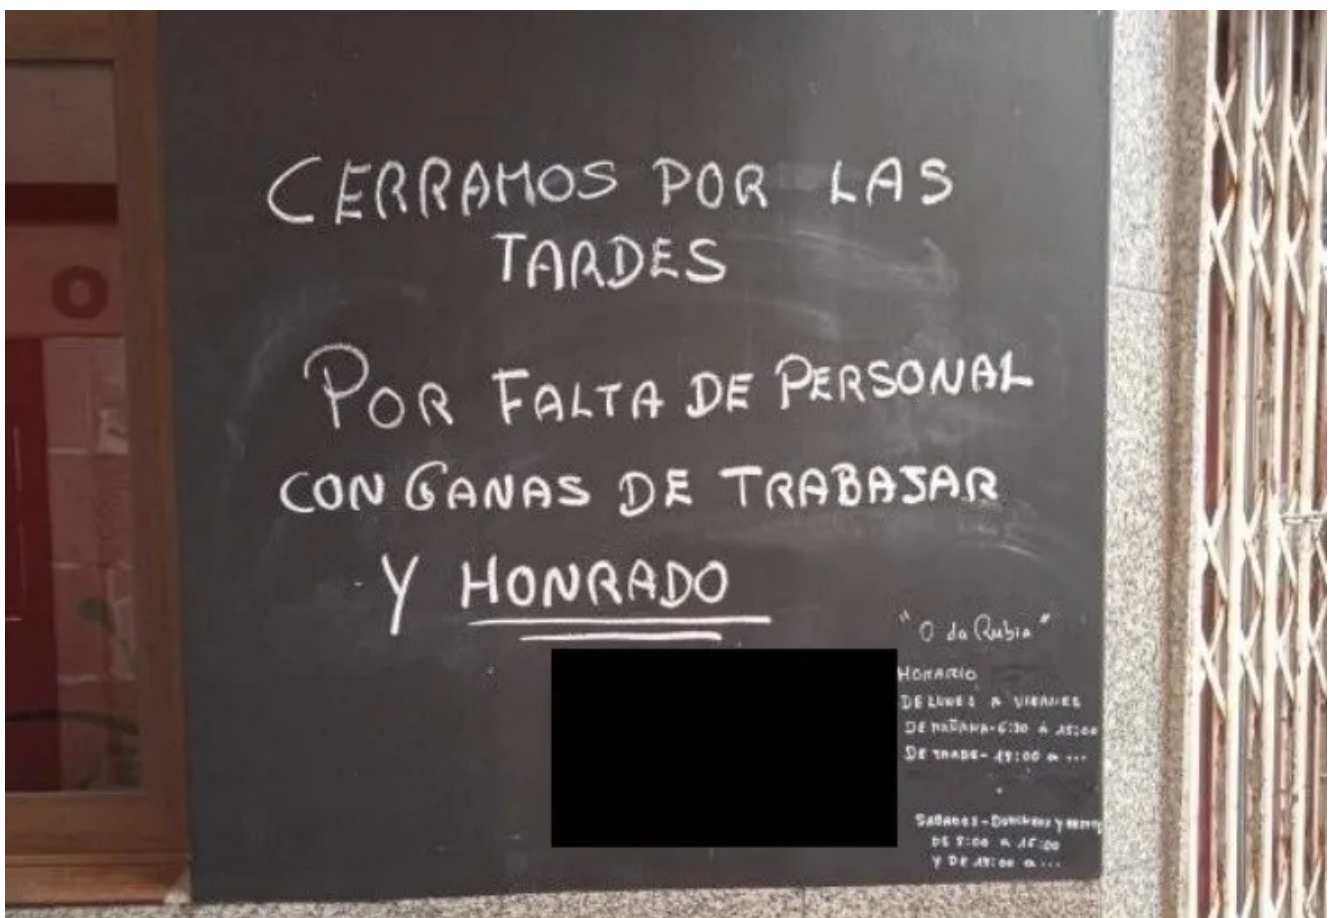 CERRAMOS POR LAS
TARDES
POR FALTA DE PERSONAL
CON GANAS DE TRABAJAR
Y HONRADO
"O da Rubia"
HORARIO
DE LUNES A VIERNES
DE MAÑANA-6:30 A 15:00
DE TARDE- 19:00 a ...
SABADOS - DOMINGOS Y
DE 8:00 A 15:00
Y DE 19:00 a ...
O